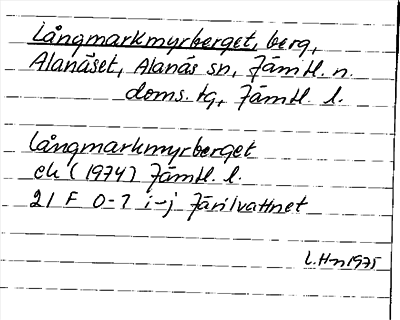 Långmarkmyrberget, berg,
Alanäset, Alanäs sn, Jämtl. n.
doms. tg, Jämtl. l.
Långmarkmyrberget
ek (1974) Jämtl. l.
21 F 0-1 i-j Järilvattnet
L.H-n 1975